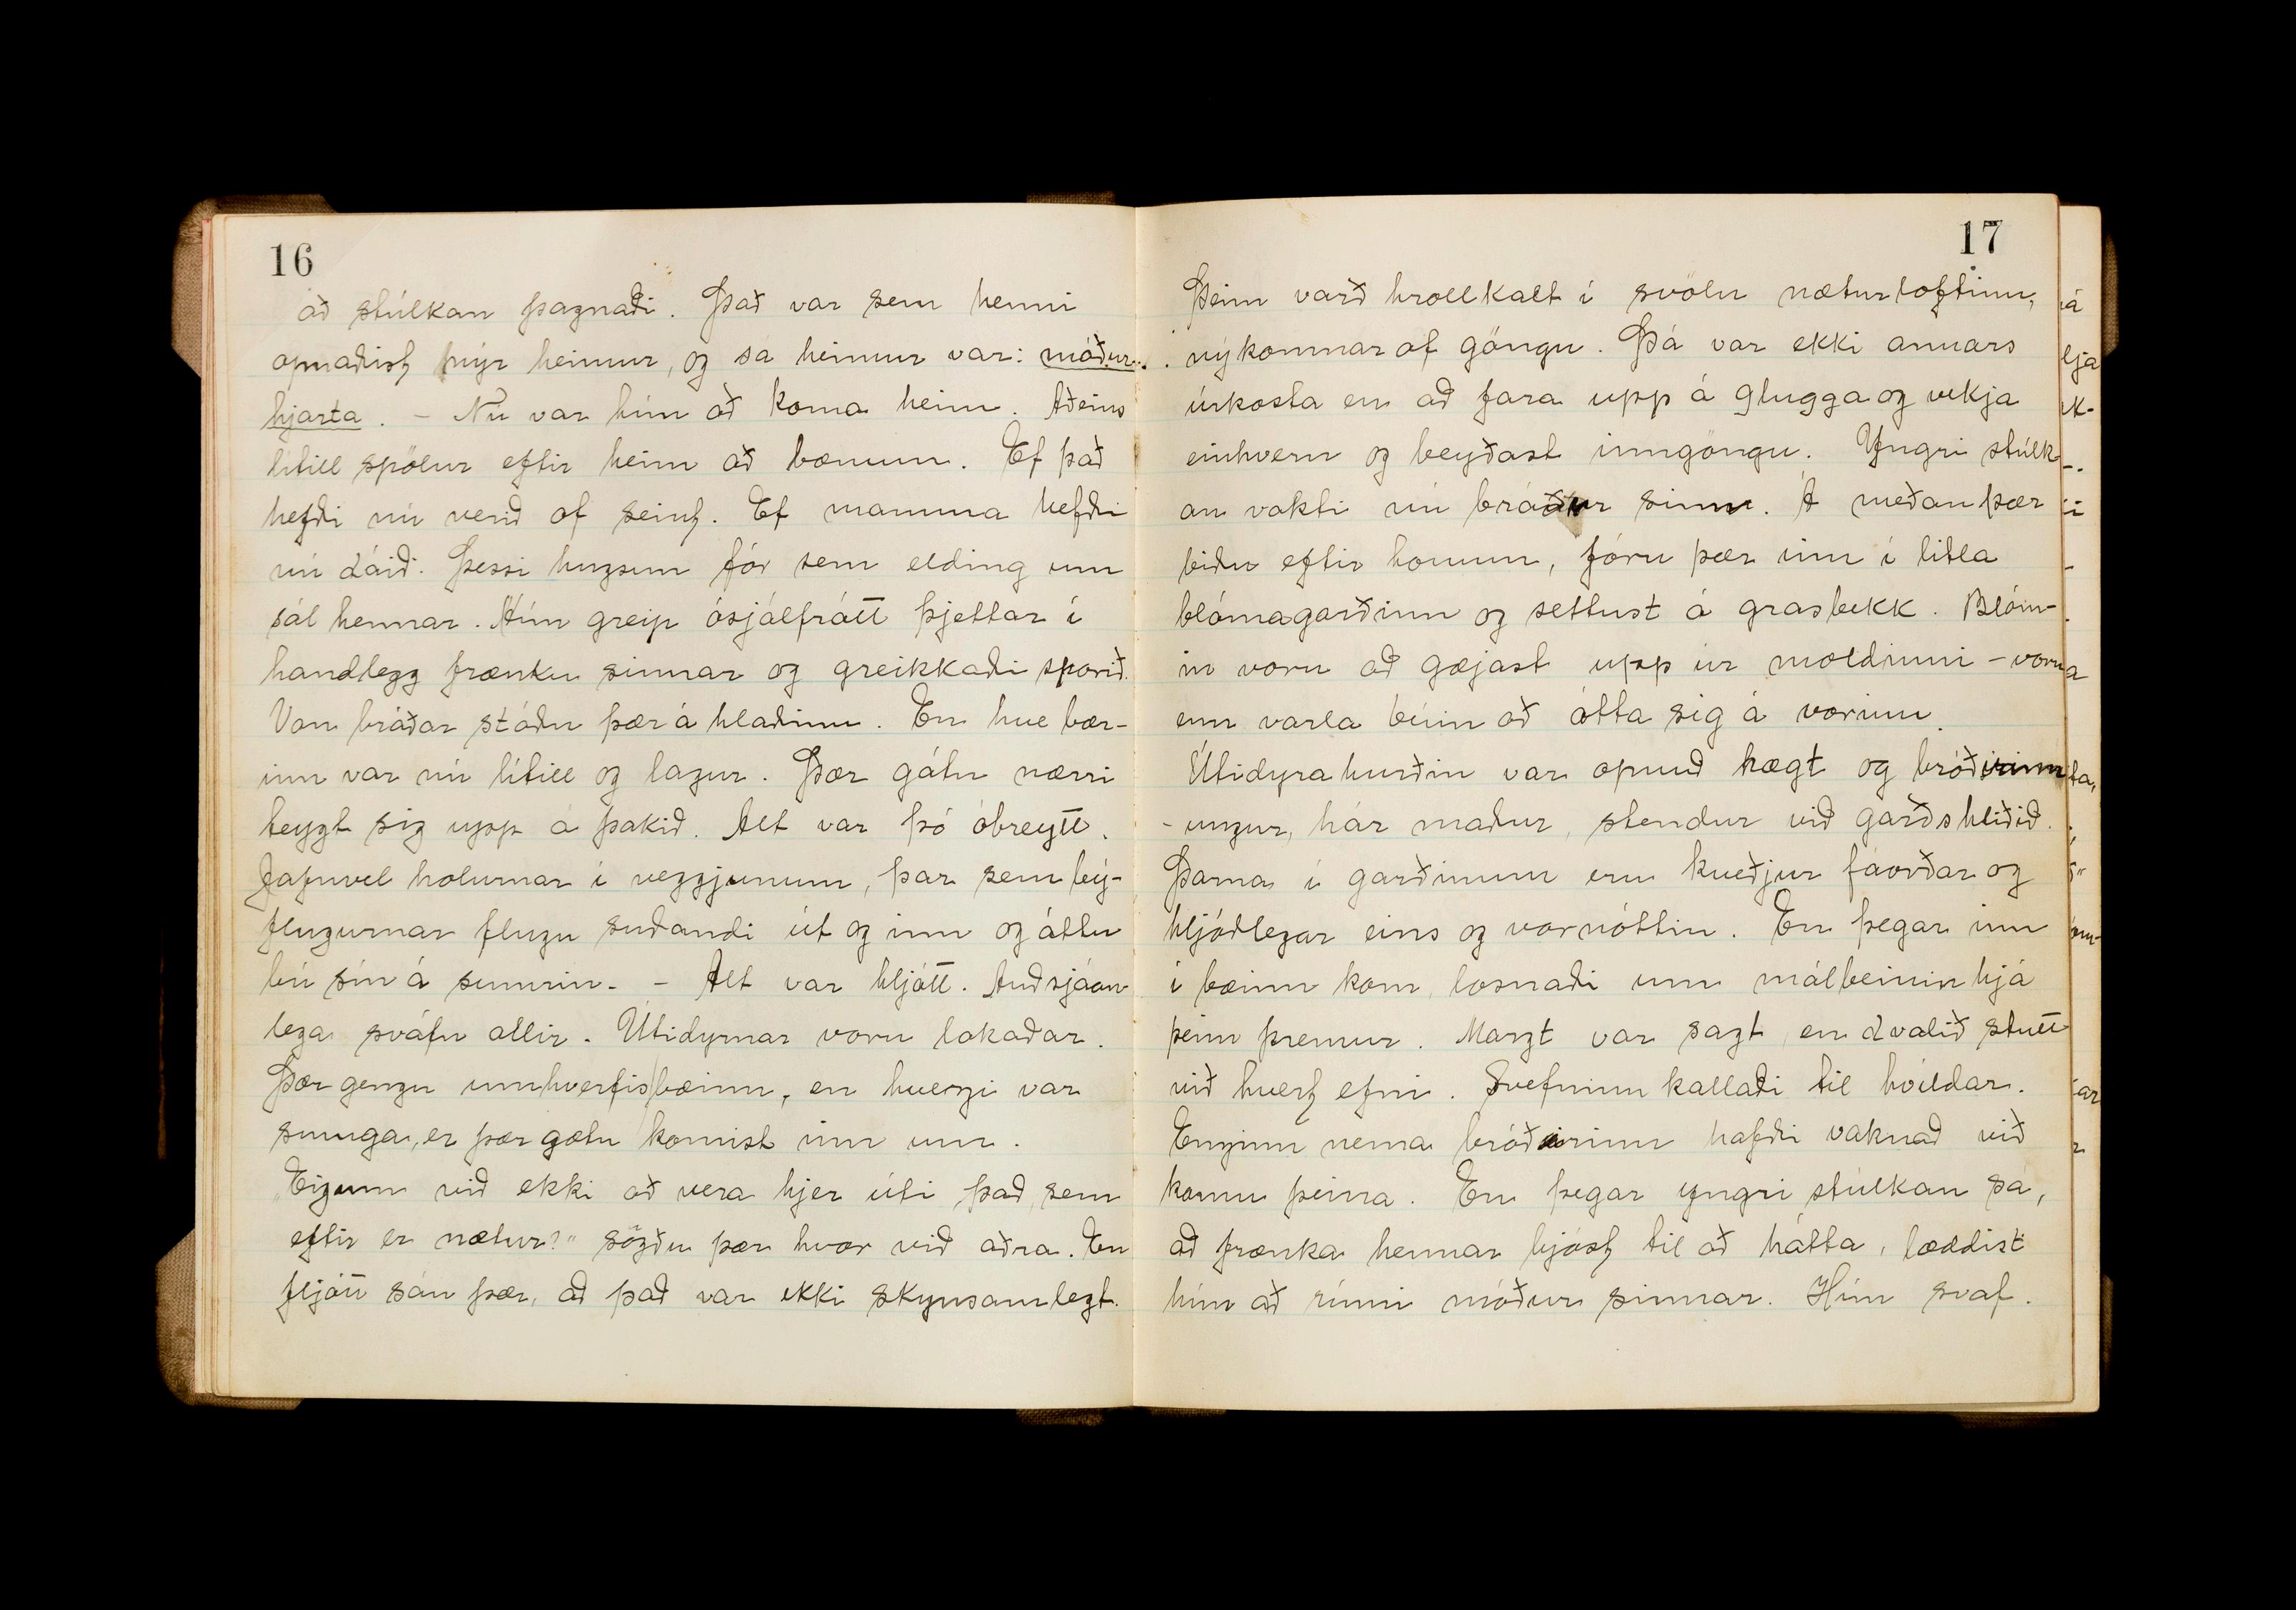 16
að stúlkan þagnaði. Það var sem henni
opnaðist nýr heimur, og sá heimur var: móður-
hjarta. - Nú var hún að koma heim. Aðeins
lítill spölur eftir heim að bænum. Ef það
hefði nú verið of seint. Ef mamma hefði
nú dáið. Þessi hugsun fór sem elding um
sál hennar. Hún greip ósjálfrátt þjettar í
handlegg frænku sinnar og greikkaði sporið.
Von bráðar stóðu þær á hlaðinu. En hve bær-
inn var nú lítill og lagur. Þær gátu nærri
teygt sig upp á þakið. Alt var þó óbreytt.
Jafnvel holurnar í veggjunum, þar sem bý-
flugurnar flugu suðandi út og inn og áttu
bú sín á sumrin. - Alt var hljótt. Auðsjáan-
lega sváfu allir. Útidyrnar voru lokaðar.
Þær gengu umhverfis bæinn, en hvergi var
smuga, er þær gætu komist inn um.
„Eigum við ekki að vera hjer úti það, sem
eftir er nætur?" sögðu þær hvor við aðra. En
fljótt sáu þær, að það var ekki skynsamlegt.
17
Þeim varð hrollkalt í svölu næturloftinu,
nýkomnar af göngu. Þá var ekki annars
úrkosta en að fara upp á glugga og vekja
einhvern og beyðast inngöngu. Yngri stúlk
an vakti nú bróður sinn. Á meðan þær
biðu eftir honum, fóru þær inn í litla
blómagarðinn og settust á grasbekk. Blóm-
in voru að gægjast upp úr moldinni - voru
enn varla búin að átta sig á vorinu.
Útidyrahurðin var opnuð hægt og bróðirinn
- ungur, hár maður, stendur við garðshliðið.
Þarna í garðinum eru kveðjur fáorðar og
hljóðlegar eins og vornóttin. En þegar inn
í bæinn kom, losnaði um málbeinin hjá
þeim þremur. Margt var sagt en dvalið stutt
við hvert efni. Svefninn kallaði til hvíldar.
Enginn nema bróðirinn hafði vaknað við
komu þeirra. En þegar yngri stúlkan sá,
að frænka hennar bjóst til að hátta, læddist
hún að rúmi móður sinnar. Hún svaf.